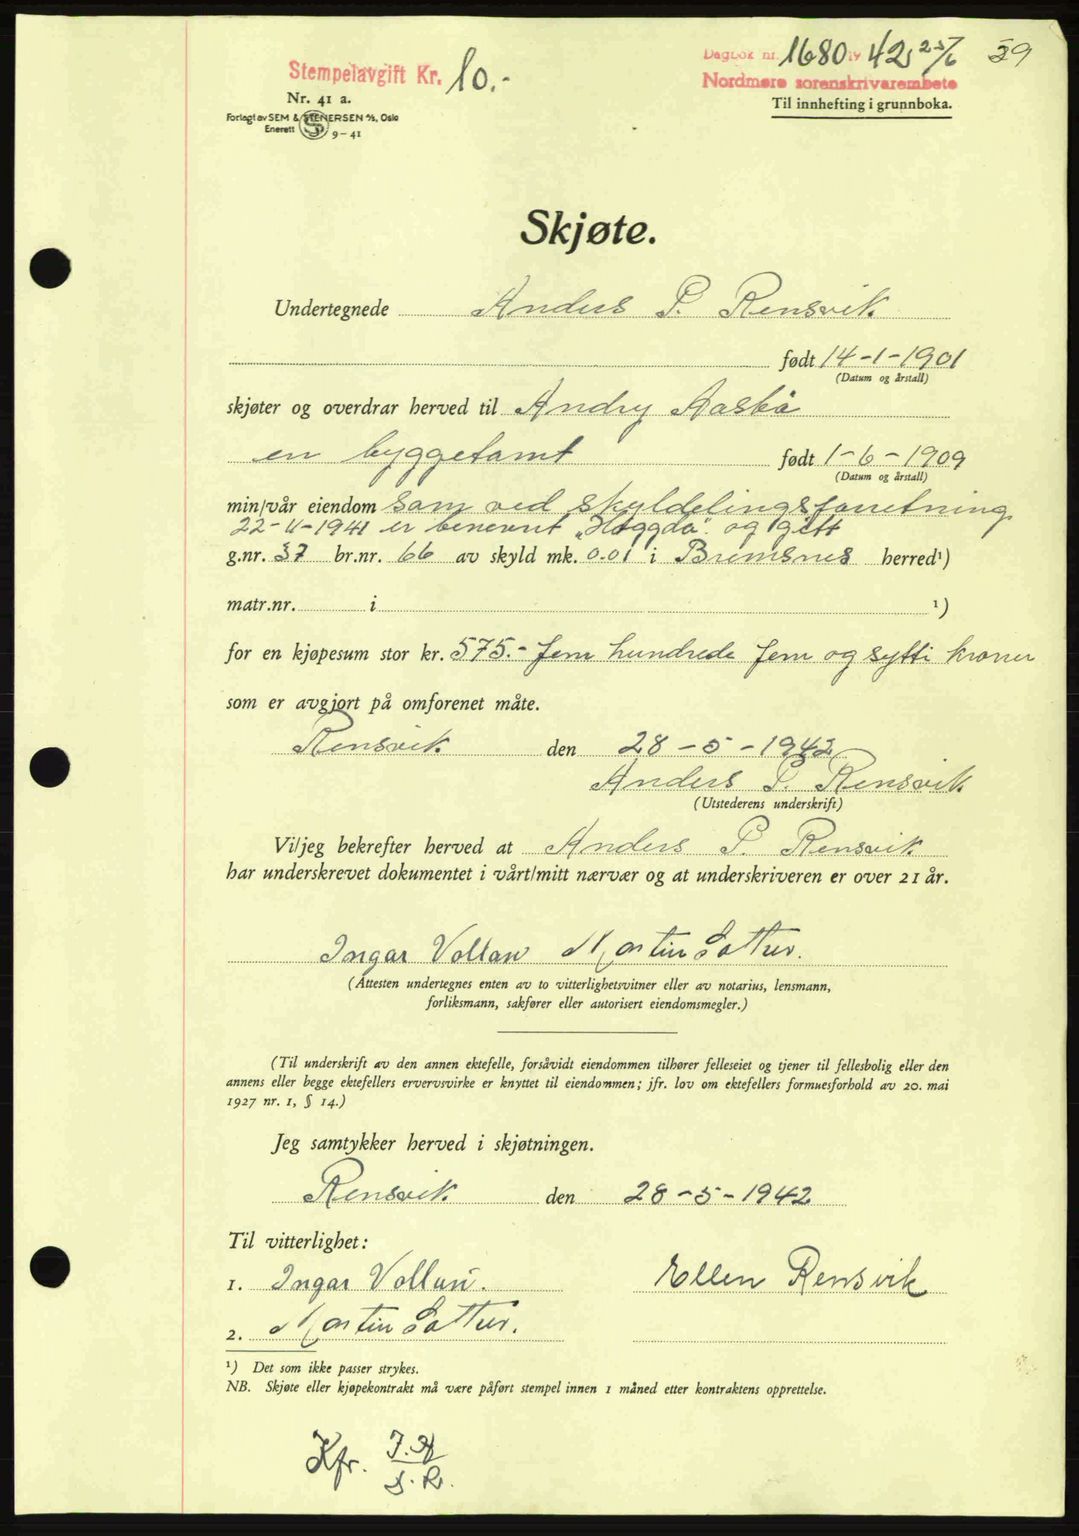 Stempelavgift Kr. 10.-
Dagbok nr. 1680 19 42 25/6 39
Nordmøre sorenskrivarembete
Til innhefting i grunnboka.
Nr. 41 a.
Forlagt av SEM & STENERSEN A/S, Oslo
Enerett S 9-41
Skjøte.
Undertegnede Anders P. Rensvik
født 14-1-1901
(Datum og årstall)
skjøter og overdrar herved til Andry Aasbø
en byggetomt født 1-6-1909
(Datum og årstall)
min/vår eiendom som ved skyldelingsforretning
22-11-1941 er benevnt "Haggda" og gitt
g.nr. 37 br.nr. 66 av skyld mk. 0.01 i Bremsnes herred¹)
matr.nr. i ¹)
for en kjøpesum stor kr. 575.- fem hundrede fem og sytti kroner
som er avgjort på omforenet måte.
Rensvik den 28-5-1942
Anders P. Rensvik
(Utstederens underskrift)
Vi/jeg bekrefter herved at Anders P. Rensvik
har underskrevet dokumentet i vårt/mitt nærvær og at underskriveren er over 21 år.
Ingar Vollan Martin Sather.
(Attesten undertegnes enten av to vitterlighetsvitner eller av notarius, lensmann,
forliksmann, sakfører eller autorisert eiendomsmegler.)
(Til underskrift av den annen ektefelle, forsåvidt eiendommen tilhører felleseiet og tjener til fellesbolig eller den
annens eller begge ektefellers ervervsvirke er knyttet til eiendommen; jfr. lov om ektefellers formuesforhold av 20. mai
1927 nr. 1, § 14.)
Jeg samtykker herved i skjøtningen.
Rensvik den 28-5-1942
Til vitterlighet:
1. Ingar Vollan. Ellen Rensvik
2. Martin Sather.
¹) Det som ikke passer strykes.
NB. Skjøte eller kjøpekontrakt må være påført stempel innen 1 måned etter kontraktens opprettelse.
Kfr.